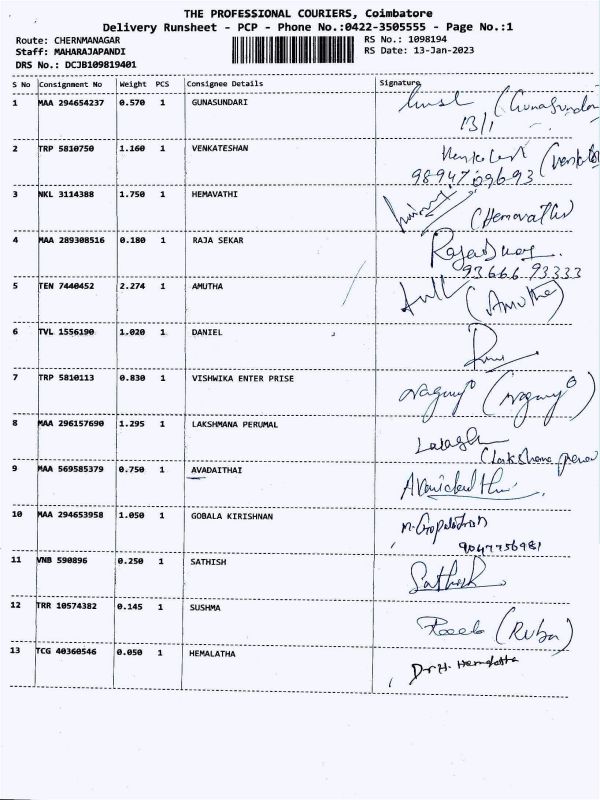 THE PROFESSIONAL COURIERS, Coimbatore
Delivery Runsheet - PCP - Phone No.:0422-3505555 - Page No.:1
Route: CHERNMANAGAR RS No.: 1098194
Staff: MAHARAJAPANDI RS Date: 13-Jan-2023
DRS No.: DCJB109819401
S No Consignment No Weight PCS Consignee Details Signature
1 MAA 294654237 0.570 1 GUNASUNDARI (Gunasundari
13/1
2 TRP 5810750 1.160 1 VENKATESHAN
98947 09693
3 NKL 3114388 1.750 1 HEMAVATHI (Hemavathi)
4 MAA 289308516 0.180 1 RAJA SEKAR
93666 93333
5 TEN 7440452 2.274 1 AMUTHA (Amutha)
6 TVL 1556190 1.020 1 DANIEL
7 TRP 5810113 0.830 1 VISHWIKA ENTER PRISE
8 MAA 296157690 1.295 1 LAKSHMANA PERUMAL
9 MAA 569585379 0.750 1 AVADAITHAI
10 MAA 294653958 1.050 1 GOBALA KIRISHNAN
9047756981
11 VNB 590896 0.250 1 SATHISH Sathish
12 TRR 10574382 0.145 1 SUSHMA (Ruba)
13 TCG 40360546 0.050 1 HEMALATHA Dr H. Hemalatha